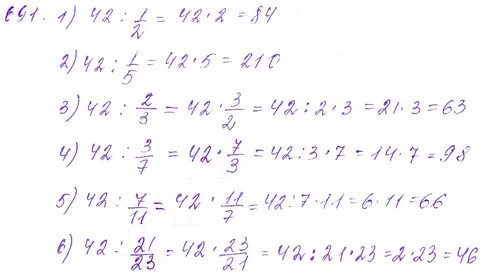 691. 1) 42 : 1/2 = 42 · 2 = 84
2) 42 : 1/5 = 42 · 5 = 210
3) 42 : 2/3 = 42 · 3/2 = 42 : 2 · 3 = 21 · 3 = 63
4) 42 : 3/7 = 42 · 7/3 = 42 : 3 · 7 = 14 · 7 = 98
5) 42 : 7/11 = 42 · 11/7 = 42 : 7 · 11 = 6 · 11 = 66
6) 42 : 21/23 = 42 · 23/21 = 42 : 21 · 23 = 2 · 23 = 46